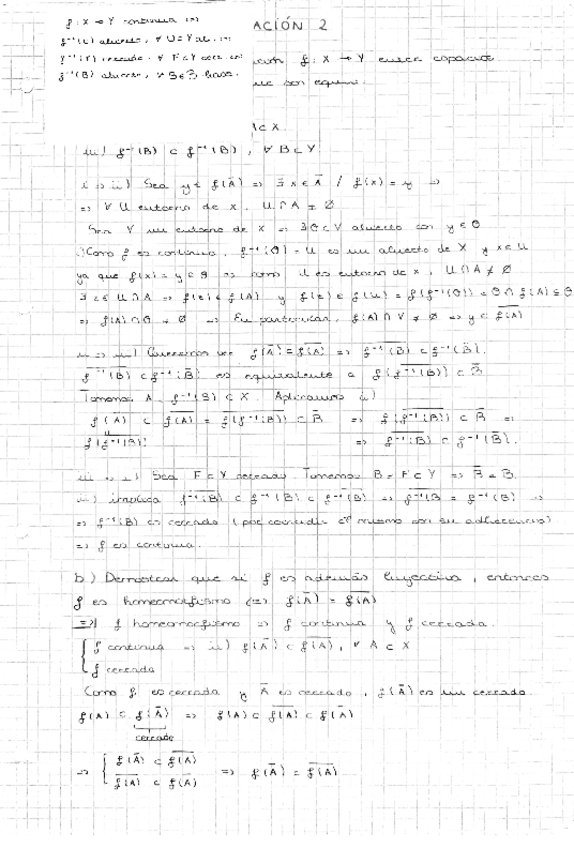 f: X → Y continua
f⁻¹(U) abierto, ∀ U ⊂ Y ab.
f⁻¹(F) cerrado, ∀ F ⊂ Y cerr.
f⁻¹(B) abierto, ∀ B ∈ B base.
ACIÓN 2
f: X → Y entre espacios
que son equiv.
A ⊂ X
iii) f⁻¹(B) ⊂ f⁻¹(B̄), ∀ B ⊂ Y
i ⇒ ii) Sea y ∈ f(Ā) ⇒ ∃ x ∈ Ā / f(x) = y ⇒
⇒ ∀ U entorno de x, U ∩ A ≠ ∅
Sea V un entorno de x ⇒ ∃ θ ⊂ V abierto con y ∈ θ
Como f es continua, f⁻¹(θ) = U es un abierto de X y x ∈ U
ya que f(x) = y ∈ θ ⇒ como U es entorno de x, U ∩ A ≠ ∅
∃ z ∈ U ∩ A ⇒ f(z) ∈ f(A) y f(z) ∈ f(U) = f(f⁻¹(θ)) = θ ∩ f(A) ⊆ θ
⇒ f(A) ∩ θ ≠ ∅ ⇒ En particular, f(A) ∩ V ≠ ∅ ⇒ y ∈ \overline{f(A)}
ii ⇒ iii) Queremos ver f(Ā) = \overline{f(A)} ⇒ f⁻¹(B) ⊂ f⁻¹(B̄).
\overline{f⁻¹(B)} ⊂ f⁻¹(B̄) es equivalente a f(\overline{f⁻¹(B)}) ⊂ B̄
Tomamos A = f⁻¹(B) ⊂ X. Aplicamos ii)
f(Ā) ⊂ \overline{f(A)} = \overline{f(f⁻¹(B))} ⊂ B̄ ⇒ f(\overline{f⁻¹(B)}) ⊂ B̄ ⇒
f(\overline{f⁻¹(B)}) ⇒ \overline{f⁻¹(B)} ⊂ f⁻¹(B̄).
iii ⇒ i) Sea F ⊂ Y cerrado. Tomamos B = F ⊂ Y ⇒ B̄ = B.
iii) implica \overline{f⁻¹(B)} ⊂ f⁻¹(B) ⊂ \overline{f⁻¹(B)} ⇒ \overline{f⁻¹(B)} = f⁻¹(B) ⇒
⇒ f⁻¹(B) es cerrado (por coincidir él mismo con su adherencia)
⇒ f es continua.
b.) Demostrar que si f es además biyectiva, entonces
f es homeomorfismo ⇔ f(Ā) = \overline{f(A)}
⇒) f homeomorfismo ⇒ f continua y f cerrada.
f continua ⇒ ii) f(Ā) ⊂ \overline{f(A)}, ∀ A ⊂ X
f cerrada
Como f es cerrada y Ā es cerrado, f(Ā) es un cerrado.
f(A) ⊂ f(Ā) ⇒ f(A) ⊂ \overline{f(A)} ⊂ f(Ā)
cerrado
⇒ { f(Ā) ⊂ \overline{f(A)}
\overline{f(A)} ⊂ f(Ā) ⇒ f(Ā) = \overline{f(A)}